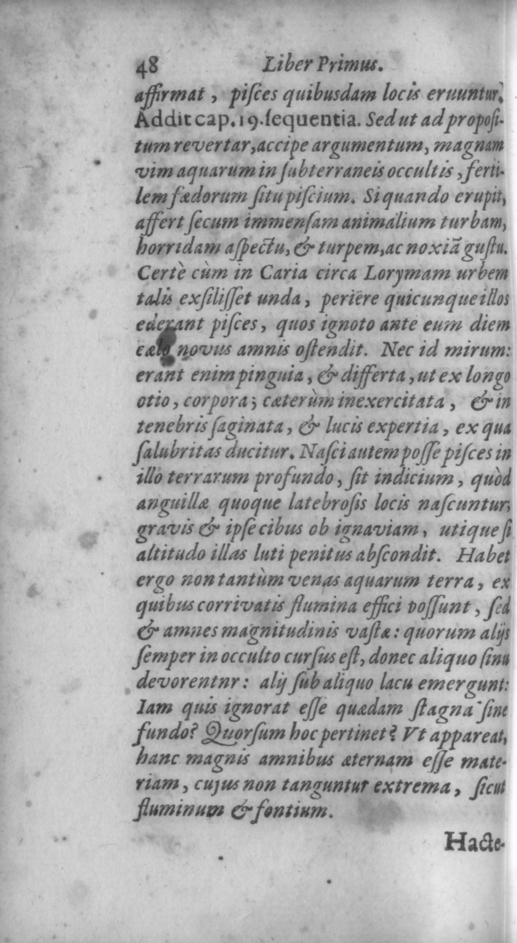 48 Liber Primus.
affirmat, piſces quibusdam locis eruuntur.
Addit cap. 19. ſequentia. Sed ut ad propoſi-
tum revertar, accipe argumentum, magnam
vim aquarum in ſubterraneis occultis, ferti-
lem fœdorum ſitu piſcium. Si quando erupit,
affert ſecum immenſam animalium turbam,
horridam aſpectu, & turpem, ac noxiã guſtu.
Certè cùm in Caria circa Lorymam urbem
talis exſiliſſet unda, periêre quicunque illos
ederant piſces, quos ignoto ante eum diem
cælo novus amnis oſtendit. Nec id mirum:
erant enim pinguia, & differta, ut ex longo
otio, corpora; cæterùm inexercitata, & in
tenebris ſaginata, & lucis expertia, ex qua
ſalubritas ducitur. Naſci autem poſſe piſces in
illo terrarum profundo, ſit indicium, quòd
anguillæ quoque latebroſis locis naſcuntur,
gravis & ipſe cibus ob ignaviam, utique ſi
altitudo illas luti penitus abſcondit. Habet
ergo non tantùm venas aquarum terra, ex
quibus corrivatis flumina effici poſſunt, ſed
& amnes magnitudinis vaſtæ: quorum alijs
ſemper in occulto curſus eſt, donec aliquo ſinu
devorentnr: alij ſub aliquo lacu emergunt:
Iam quis ignorat eſſe quædam ſtagna ſine
fundo? Quorſum hoc pertinet? Vt appareat,
hanc magnis amnibus æternam eſſe mate-
riam, cujus non tanguntur extrema, ſicut
fluminum & fontium.
Hacte-